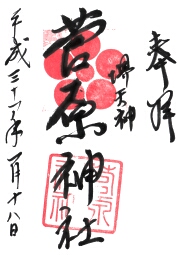 奉拝
堺天神
菅原神社
平成三十一年一月十八日